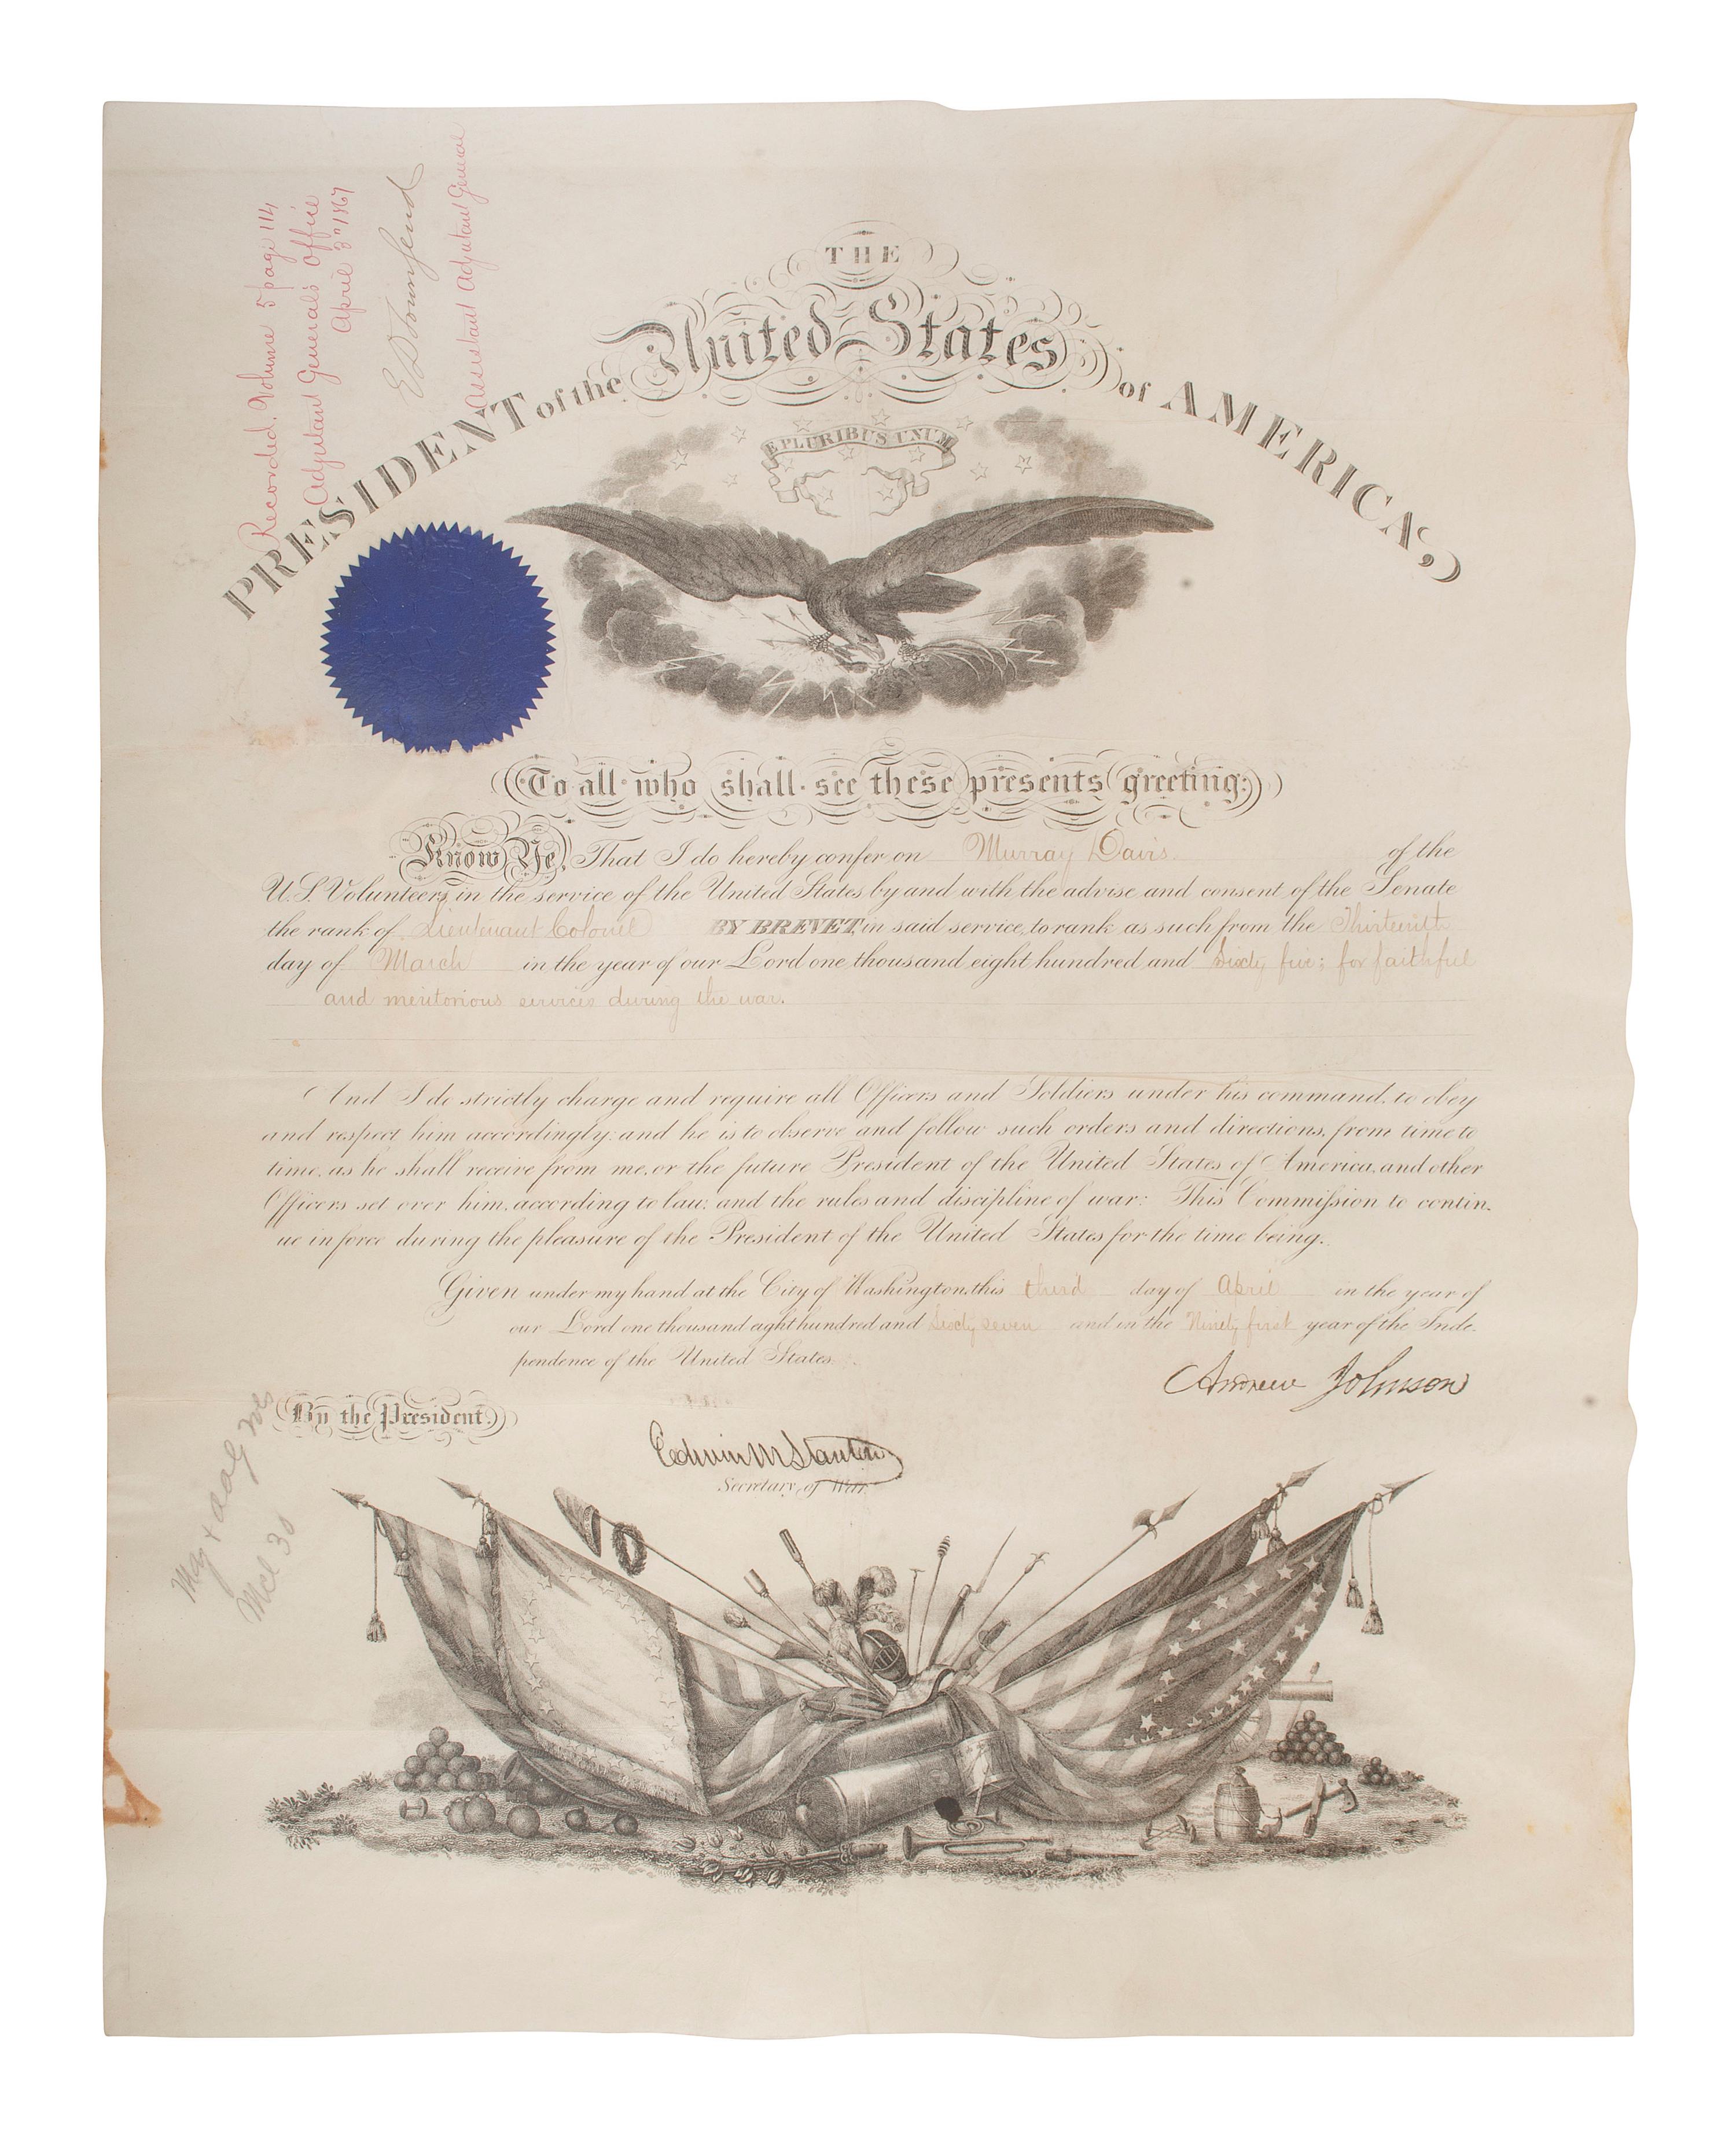 Recorded. Volume 5 page 114
Adjutant General's Office
April 3d 1867
E D Townsend
Assistant Adjutant General
THE
PRESIDENT of the United States of AMERICA,
E PLURIBUS UNUM
To all who shall see these presents greeting:
Know Ye, That I do hereby confer on Murray Davis of the
U.S. Volunteers, in the service of the United States by and with the advise and consent of the Senate
the rank of Lieutenant Colonel BY BREVET, in said service, to rank as such from the Thirteenth
day of March in the year of our Lord one thousand eight hundred and Sixty five; for faithful
and meritorious services during the war.
And I do strictly charge and require all Officers and Soldiers under his command, to obey
and respect him accordingly: and he is to observe and follow such orders and directions, from time to
time, as he shall receive from me, or the future President of the United States of America, and other
Officers set over him, according to law, and the rules and discipline of war: This Commission to contin-
ue in force during the pleasure of the President of the United States for the time being.
Given under my hand at the City of Washington, this third day of April in the year of
our Lord one thousand eight hundred and Sixty seven and in the Ninety first year of the Inde-
pendence of the United States.
Andrew Johnson
By the President.
Edwin M Stanton
Secretary of War